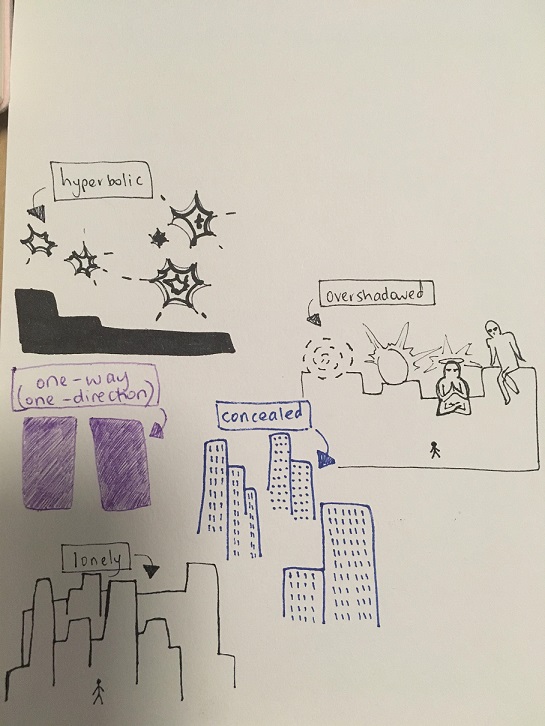 hyperbolic
overshadowed
one-way
(one-direction)
concealed
lonely